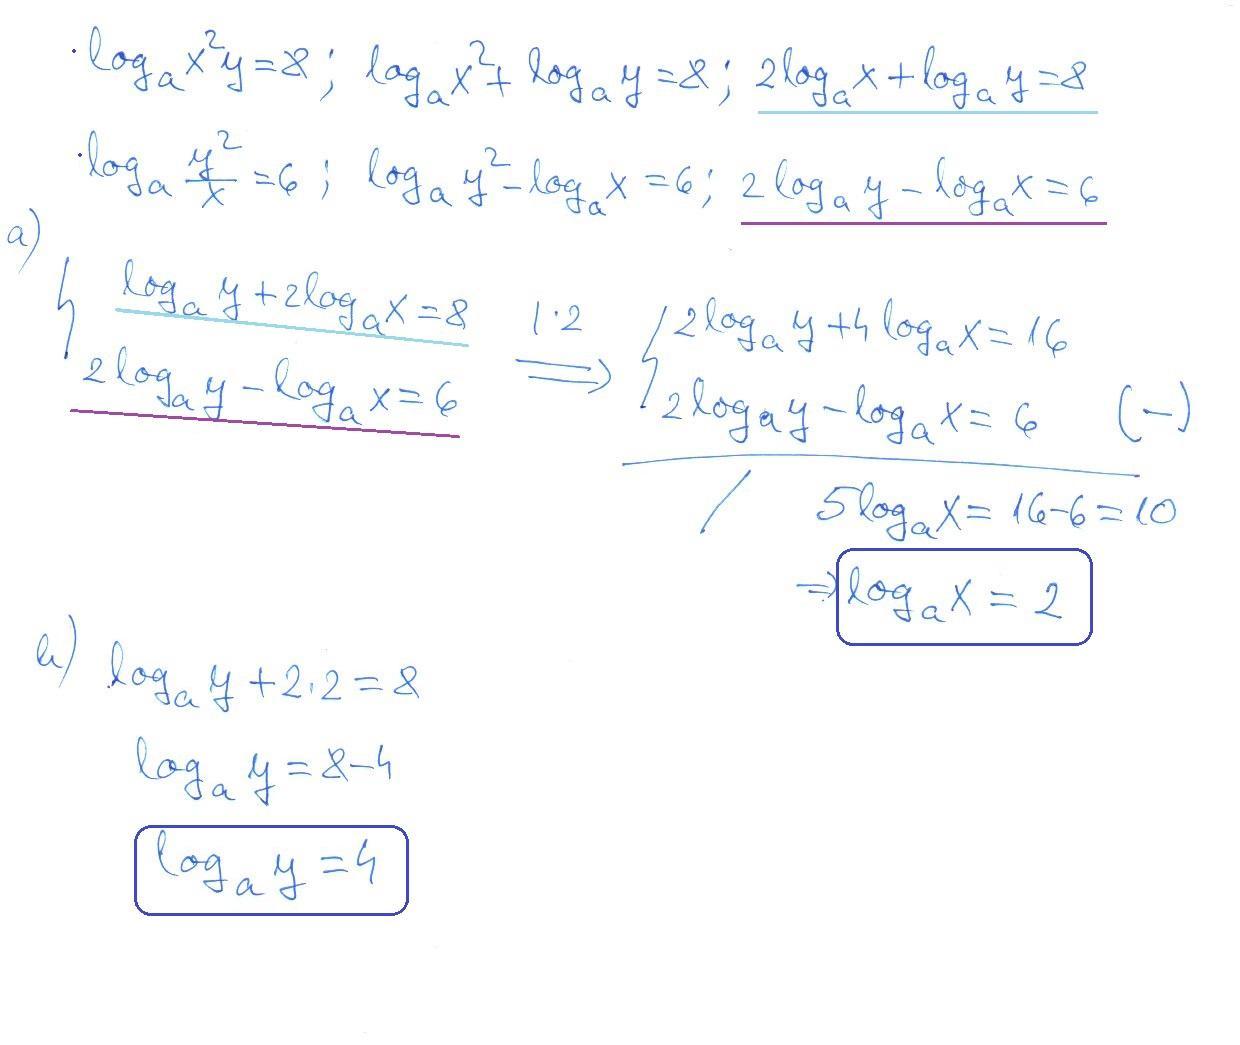 · logₐ x²y = 8 ; logₐ x² + logₐ y = 8 ; 2logₐ x + logₐ y = 8
· logₐ y²/x = 6 ; logₐ y² - logₐ x = 6 ; 2logₐ y - logₐ x = 6
a)
{ logₐ y + 2logₐ x = 8 |·2 ⟹ { 2logₐ y + 4logₐ x = 16
2logₐ y - logₐ x = 6 2logₐ y - logₐ x = 6 (-)
/ 5logₐ x = 16-6 = 10
⇒ logₐ x = 2
b) logₐ y + 2·2 = 8
logₐ y = 8-4
logₐ y = 4